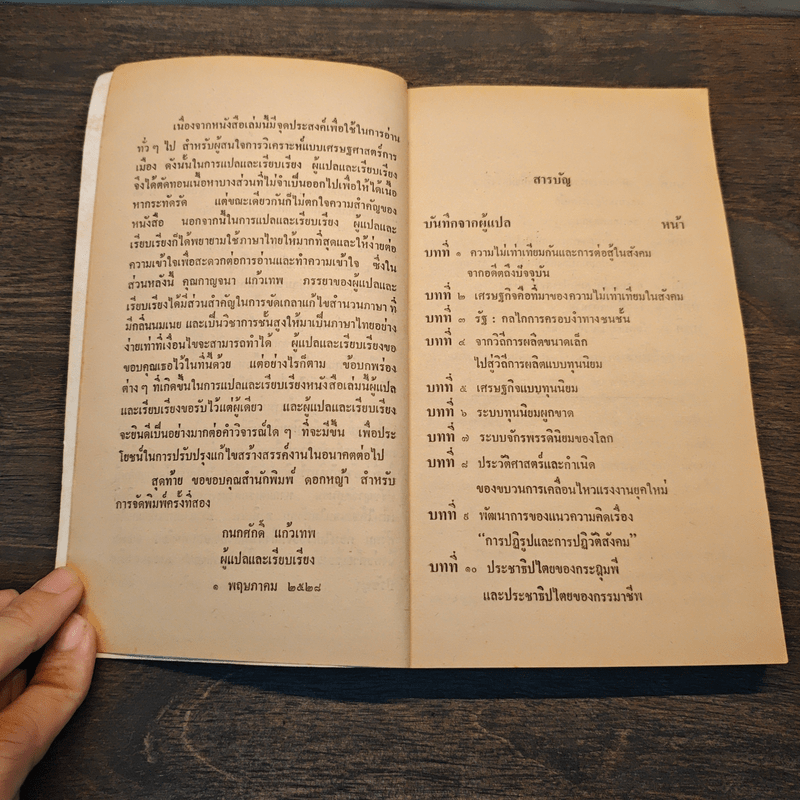 เนื่องจากหนังสือเล่มนี้มีจุดประสงค์เพื่อใช้ในการอ่าน
ทั่ว ๆ ไป สำหรับผู้สนใจการวิเคราะห์แบบเศรษฐศาสตร์การ
เมือง ดังนั้นในการแปลและเรียบเรียง ผู้แปลและเรียบเรียง
จึงได้ตัดทอนเนื้อหาบางส่วนที่ไม่จำเป็นออกไปเพื่อให้ได้เนื้อ
หากระทัดรัด แต่ขณะเดียวกันก็ไม่ตกใจความสำคัญของ
หนังสือ นอกจากนี้ในการแปลและเรียบเรียง ผู้แปลและ
เรียบเรียงก็ได้พยายามใช้ภาษาไทยให้มากที่สุดและให้ง่ายต่อ
ความเข้าใจเพื่อสะดวกต่อการอ่านและทำความเข้าใจ ซึ่งใน
ส่วนหลังนี้ คุณกาญจนา แก้วเทพ ภรรยาของผู้แปลและ
เรียบเรียงได้มีส่วนสำคัญในการขัดเกลาแก้ไขสำนวนภาษา ที่
มีกลิ่นนมเนย และเป็นวิชาการชั้นสูงให้มาเป็นภาษาไทยอย่าง
ง่ายเท่าที่เงื่อนไขจะสามารถทำได้ ผู้แปลและเรียบเรียงขอ
ขอบคุณเธอไว้ในที่นี้ด้วย แต่อย่างไรก็ตาม ข้อบกพร่อง
ต่าง ๆ ที่เกิดขึ้นในการแปลและเรียบเรียงหนังสือเล่มนี้ผู้แปล
และเรียบเรียงขอรับไว้แต่ผู้เดียว และผู้แปลและเรียบเรียง
จะยินดีเป็นอย่างมากต่อคำวิจารณ์ใด ๆ ที่จะมีขึ้น เพื่อประ
โยชน์ในการปรับปรุงแก้ไขสร้างสรรค์งานในอนาคตต่อไป
สุดท้าย ขอขอบคุณสำนักพิมพ์ ดอกหญ้า สำหรับ
การจัดพิมพ์ครั้งที่สอง
กนกศักดิ์ แก้วเทพ
ผู้แปลและเรียบเรียง
๑ พฤษภาคม ๒๕๒๘
สารบัญ
บันทึกจากผู้แปล หน้า
บทที่ ๑ ความไม่เท่าเทียมกันและการต่อสู้ในสังคม
จากอดีตถึงปัจจุบัน
บทที่ ๒ เศรษฐกิจคือที่มาของความไม่เท่าเทียมในสังคม
บทที่ ๓ รัฐ : กลไกการครอบงำทางชนชั้น
บทที่ ๔ จากวิถีการผลิตขนาดเล็ก
ไปสู่วิถีการผลิตแบบทุนนิยม
บทที่ ๕ เศรษฐกิจแบบทุนนิยม
บทที่ ๖ ระบบทุนนิยมผูกขาด
บทที่ ๗ ระบบจักรพรรดินิยมของโลก
บทที่ ๘ ประวัติศาสตร์และกำเนิด
ของขบวนการเคลื่อนไหวแรงงานยุคใหม่
บทที่ ๙ พัฒนาการของแนวความคิดเรื่อง
“การปฏิรูปและการปฏิวัติสังคม”
บทที่ ๑๐ ประชาธิปไตยของกระฎุมพี
และประชาธิปไตยของกรรมาชีพ